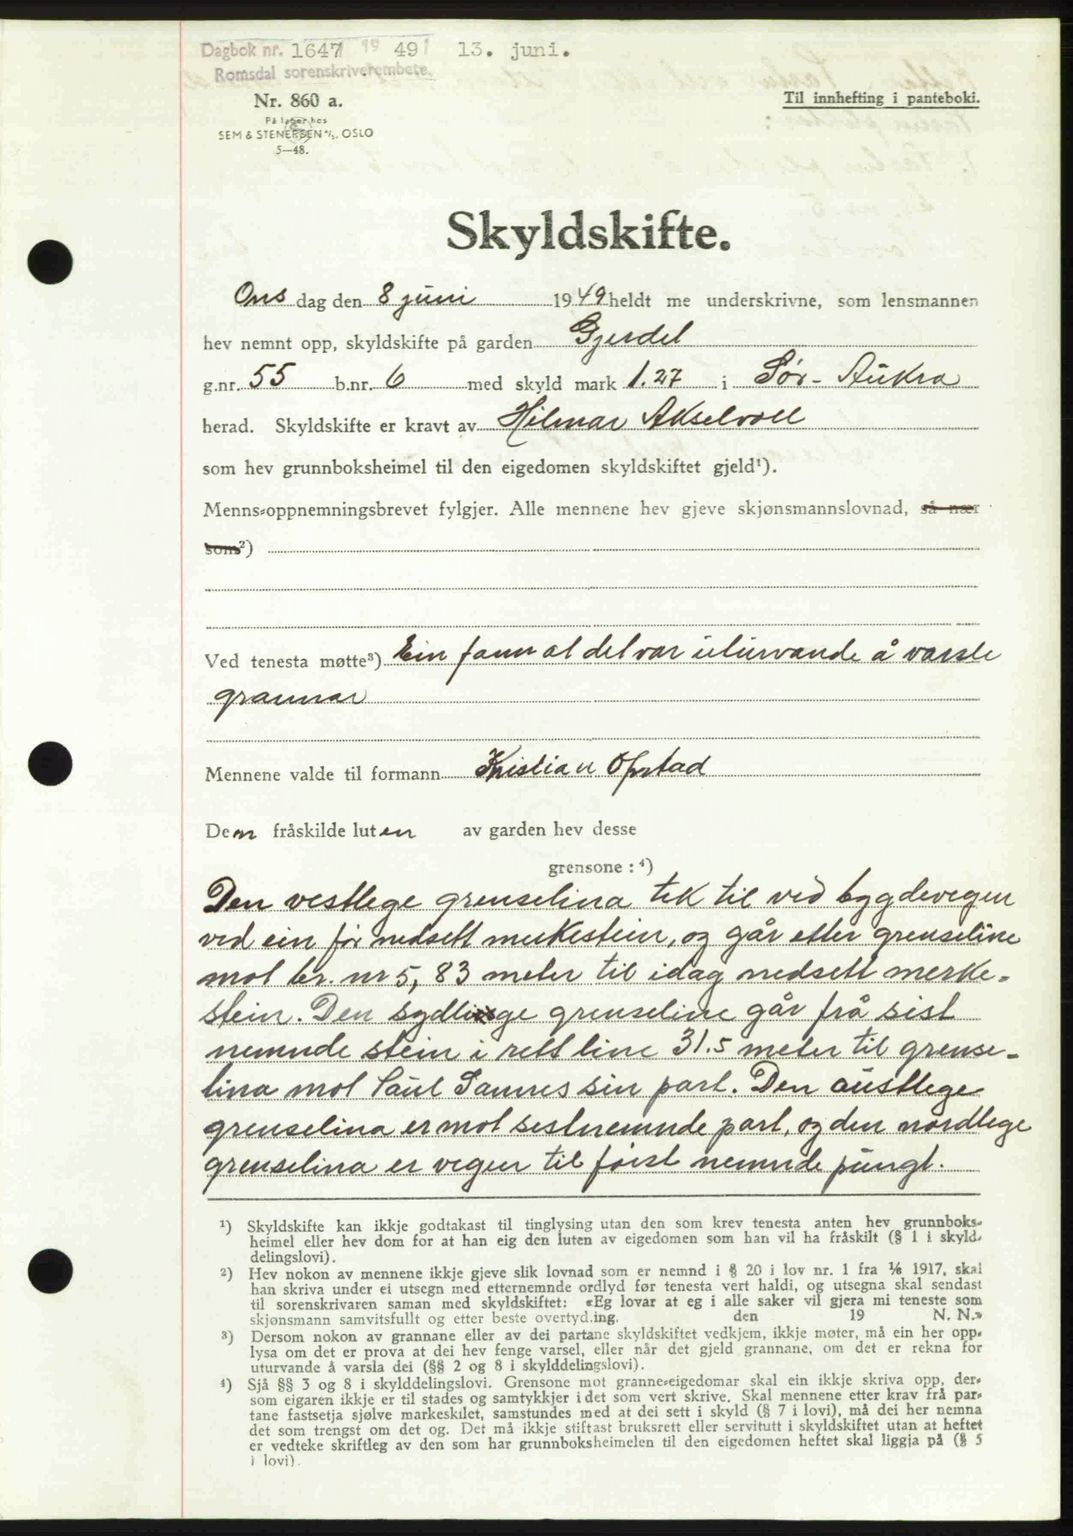 Dagbok nr. 1647 19 49 13. juni.
Romsdal sorenskriverembete.
Nr. 860 a.
På lager hos
SEM & STENERSEN A/S. OSLO
5—48.
Til innhefting i panteboki.
Skyldskifte.
Ons dag den 8 juni 1949 heldt me underskrivne, som lensmannen
hev nemnt opp, skyldskifte på garden Gjerdet
g.nr. 55 b.nr. 6 med skyld mark 1.27 i Sør-Aukra
herad. Skyldskifte er kravt av Hilmar Akselvoll
som hev grunnboksheimel til den eigedomen skyldskiftet gjeld¹).
Menns-oppnemningsbrevet fylgjer. Alle mennene hev gjeve skjønsmannslovnad, så nær
som²)
Ved tenesta møtte³) Ein fann at det var uturvande å varsle
grannar
Mennene valde til formann Kristian Opstad
Den fråskilde luten av garden hev desse
grensone : ⁴)
Den vestlege grenselina tek til ved bygdevegen
ved ein før nedsett merkestein, og går etter grenseline
mot br. nr 5, 83 meter til idag nedsett merke-
stein. Den sydlige grenseline går frå sist
nemnde stein i rett line 31.5 meter til grense-
lina mot Paul Samnes sin part. Den austlege
grenselina er mot sestnemnde part, og den nordlege
grenselina er vegen til først nemnde pungt.
¹) Skyldskifte kan ikkje godtakast til tinglysing utan den som krev tenesta anten hev grunnboks-
heimel eller hev dom for at han eig den luten av eigedomen som han vil ha fråskilt (§ 1 i skyld-
delingslovi).
²) Hev nokon av mennene ikkje gjeve slik lovnad som er nemnd i § 20 i lov nr. 1 fra ¹/₆ 1917, skal
han skriva under ei utsegn med etternemnde ordlyd før tenesta vert haldi, og utsegna skal sendast
til sorenskrivaren saman med skyldskiftet: «Eg lovar at eg i alle saker vil gjera mi teneste som
skjønsmann samvitsfullt og etter beste overtyding. den 19 N. N.»
³) Dersom nokon av grannane eller av dei partane skyldskiftet vedkjem, ikkje møter, må ein her opp-
lysa om det er prova at dei hev fenge varsel, eller når det gjeld grannane, om det er rekna for
uturvande å varsla dei (§§ 2 og 8 i skylddelingslovi).
⁴) Sjå §§ 3 og 8 i skylddelingslovi. Grensone mot granne-eigedomar skal ein ikkje skriva opp, der-
som eigaren ikkje er til stades og samtykkjer i det som vert skrive. Skal mennene etter krav frå par-
tane fastsetja sjølve markeskilet, samstundes med at dei sett i skyld (§ 7 i lovi), må dei her nemna
det som trengst om det og. Det må ikkje stiftast bruksrett eller servitutt i skyldskiftet utan at heftet
er vedteke skriftleg av den som har grunnboksheimelen til den eigedomen heftet skal liggja på (§ 5
i lovi).